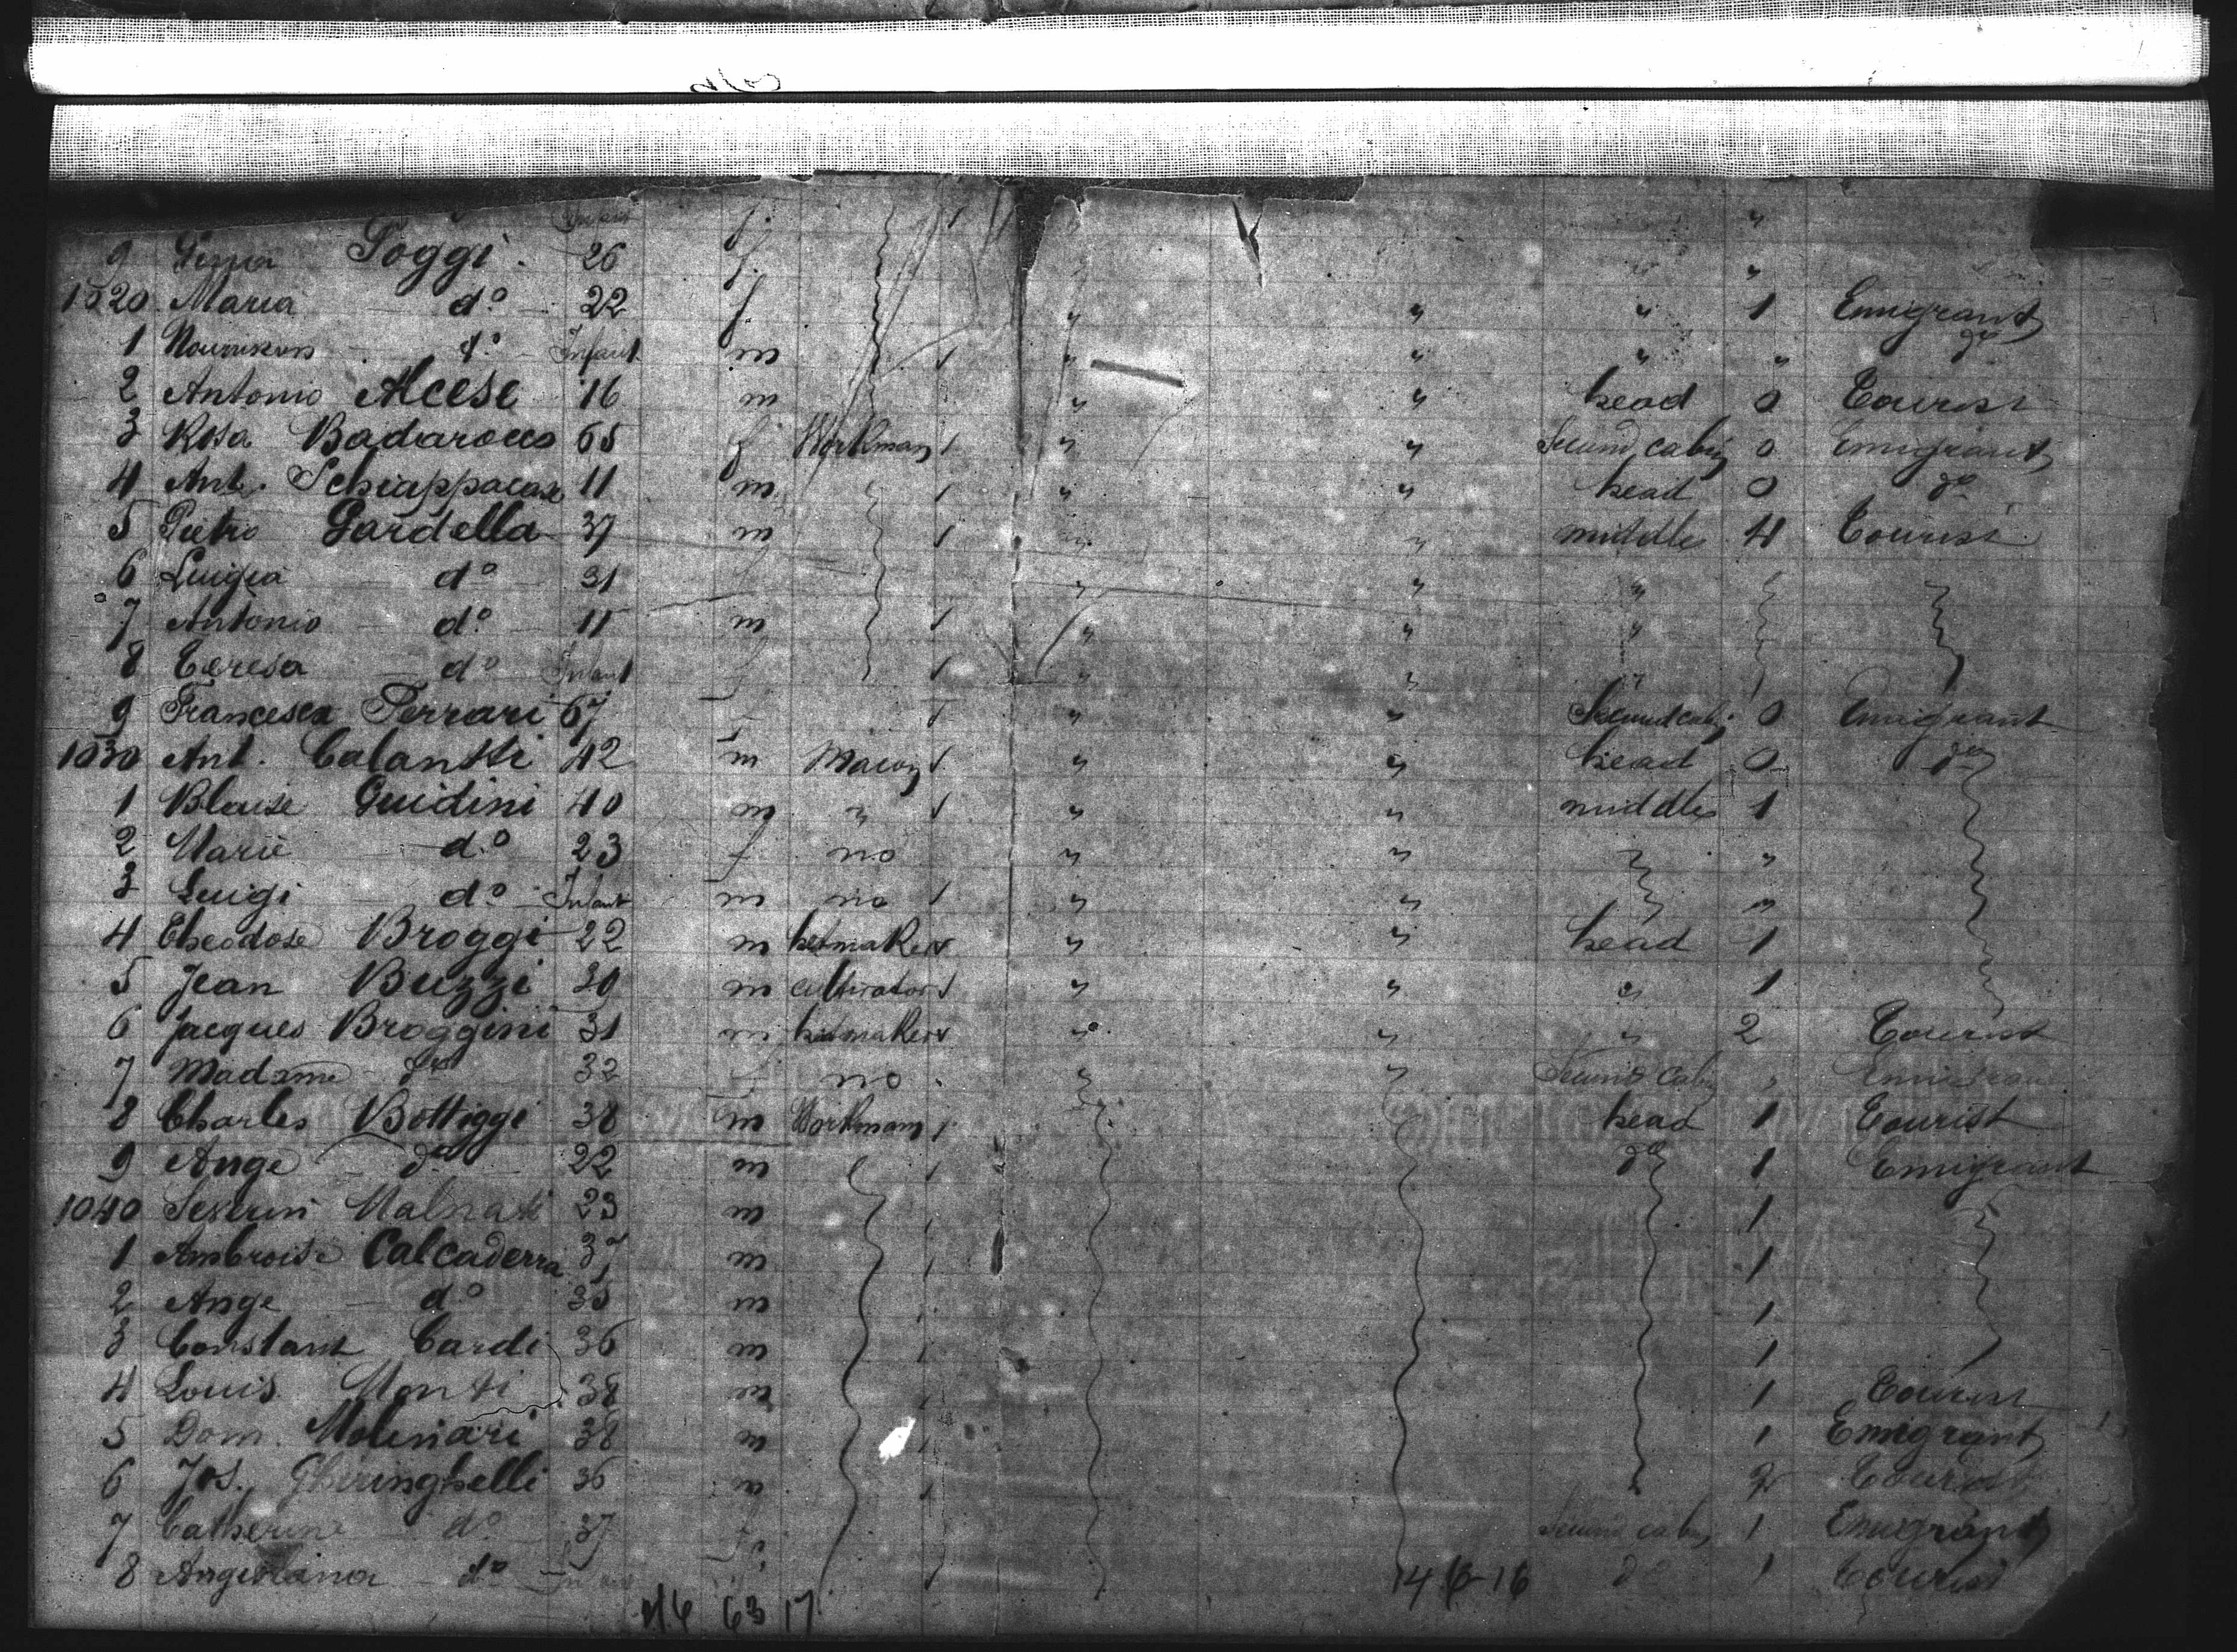 Infant f. "
9 Poggi. 26 f. " "
1020 Maria do 22 f " " " 1 Emigrant
1 do Infant m " " " " do
2 Antonio Alcese 16 m " " head 0 Tourist
3 Rosa Badarocco 65 f Workman " " Second cabin 0 Emigrant
4 Ant. Schiappacase 11 m " " head 0 do
5 Pietro Gardella 37 m " " middle 4 Tourist
6 Luigia do 31 " " "
7 Antonio do 11 m " " "
8 Teresa do Infant f " " "
9 Francesca Ferrari 67 f " " Second cabin 0 Emigrant
1030 Ant. Calantti 42 m Macon " " head 0 do
1 Blaise Guidini 40 m " " " middle 1
2 Marie do 23 f no " " "
3 Luigi do Infant m no " " "
4 Theodose Broggi 22 m hetmaker " " head 1
5 Jean Buzzi 30 m cultivator " " " 1
6 Jacques Broggini 31 m hetmaker " " " 2 Tourist
7 Madame do 32 f no " " Second Cabin " Emigrant
8 Charles Bottiggi 38 m Workman head 1 Tourist
9 Ange do 22 m do 1 Emigrant
1040 Severin Malnati 23 m 1
1 Ambroise Calcaderra m 1
2 Ange do 35 m 1
3 Constant Cardi 36 m 1
4 Louis Monti 38 m 1 Tourist
5 Dom. Molinari 38 m 1 Emigrant
6 Jos. Ghiringhelli 36 m 2 Tourist
7 Catherine do 37 f Second cabin 1 Emigrant
8 do Infant do 1 Tourist
63 17